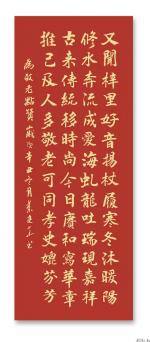 又聞梓里好音揚杖履寒冬沐暖陽
修水奔流成愛海虬龍吐瑞現嘉祥
古来傳統移時尚今日賡和寫華章
推己及人多敬老可同孝史媲芬芳
為敬老點贊歲次辛丑